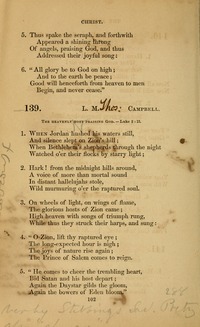 CHRIST.
5. Thus spake the seraph, and forthwith
Appeared a shining throng
Of angels, praising God, and thus
Addressed their joyful song:
6. "All glory be to God on high;
And to the earth be peace;
Good will henceforth from heaven to men
Begin, and never cease."
139. L. M. Thos: CAMPBELL.
THE HEAVENLY HOST PRAISING GOD.—LUKE 2:13.
1. WHEN Jordan hushed his waters still,
And silence slept on Zion's hill;
When Bethlehem's shepherds through the night
Watched o'er their flocks by starry light;
2. Hark! from the midnight hills around,
A voice of more than mortal sound
In distant hallelujahs stole,
Wild murmuring o'er the raptured soul.
3. On wheels of light, on wings of flame,
The glorious hosts of Zion came;
High heaven with songs of triumph rung,
While thus they struck their harps, and sung:
4. "O Zion, lift thy raptured eye;
The long-expected hour is nigh;
The joys of nature rise again;
The Prince of Salem comes to reign.
5. "He comes to cheer the trembling heart,
Bid Satan and his host depart;
Again the Daystar gilds the gloom,
Again the bowers of Eden bloom."
102